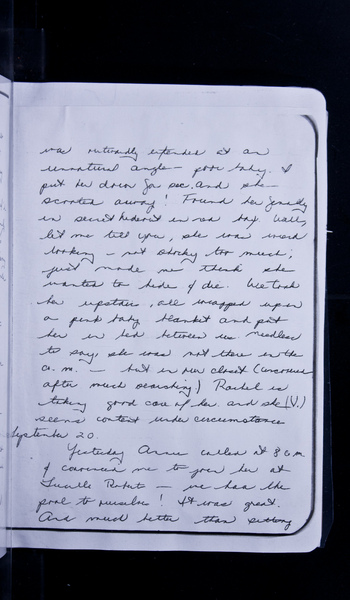 was outwardly extended at an
unnatural angle - poor baby. I
put her down for sec. and she
scooted away! Found her finally
in secret hideout in rod bay. Well,
let me tell you, she was weird
looking - not shocky too much;
just made me think she
wanted to hide & die. We took
her upstairs, all wrapped up in
a pink baby blanket and put
her in bed between us. Needless
to say, she was not there in the
a.m. - but in our closet (uncovered
after much searching) Rachel is
taking good care of her. and she (V.)
seems content under circumstance
September 20.
Yesterday Anne called at 8 a.m.
& convinced me to join her at
Lucille Roberts - we had the
pool to ourselves! It was great.
And much better than